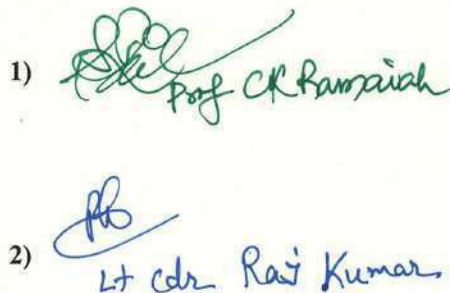 1)
Prof CK Ramaiah
2)
Lt cdr Raj Kumar